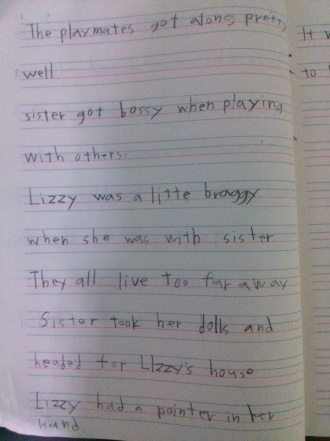 The playmates got along pretty
well
sister got bossy when playing
with others.
Lizzy was a litte braggy
when she was with sister
They all live too far away
Sister took her dolls and
headed for LIzzy's house
Lizzy had a pointer in her
hand.
It
to